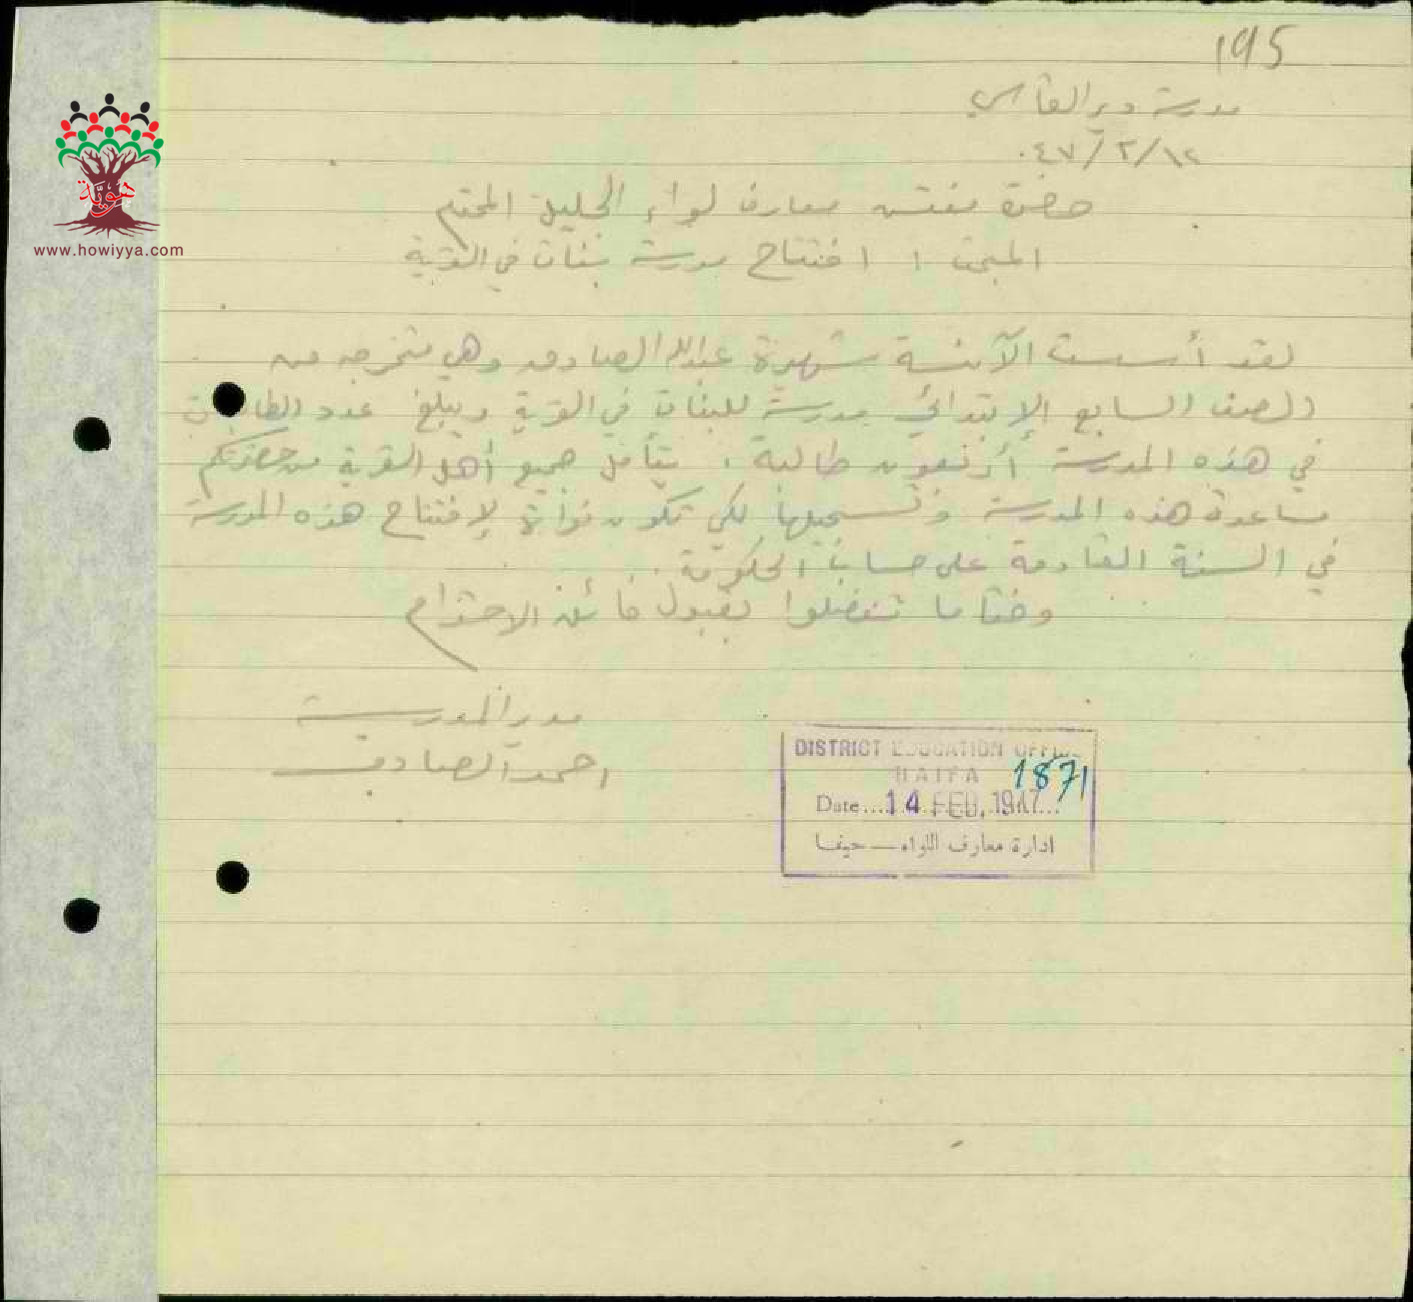 195
مدرسة دير القاسي
١٢/٢/٤٧.
حضرة مفتش معارف لواء الجليل المحترم
المبحث : افتتاح مدرسة بنات في القرية
لقد أسست الآنسة شهرزة عبدالله الصادق وهي متخرجه من
الصف السابع الإبتدائي مدرسة للبنات في القرية ويبلغ عدد الطالبات
في هذه المدرسة أربعون طالبة . يتأمل جميع أهل القرية من حضرتكم
مساعدة هذه المدرسة وتسجيلها لكي تكون نواة لإفتتاح هذه المدرسة
في السنة القادمة على حساب الحكومة .
وختاما تفضلوا بقبول فائق الاحترام
مدير المدرسة
احمد الصادق
DISTRICT EDUCATION OFFICE
HAIFA 1871
Date....14 FEB, 1947...
ادارة معارف اللواء — حيفا
هوية
www.howiyya.com